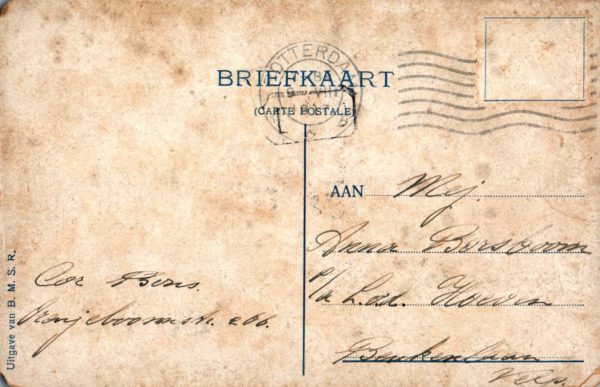 BRIEFKAART
(CARTE POSTALE)
ROTTERDA
AAN Mej.
Anna Borsboom
p/a L.
Beukenlaan
Cor Bons.
Oranjeboomstr. 266.
Uitgave van B. M. S. R.